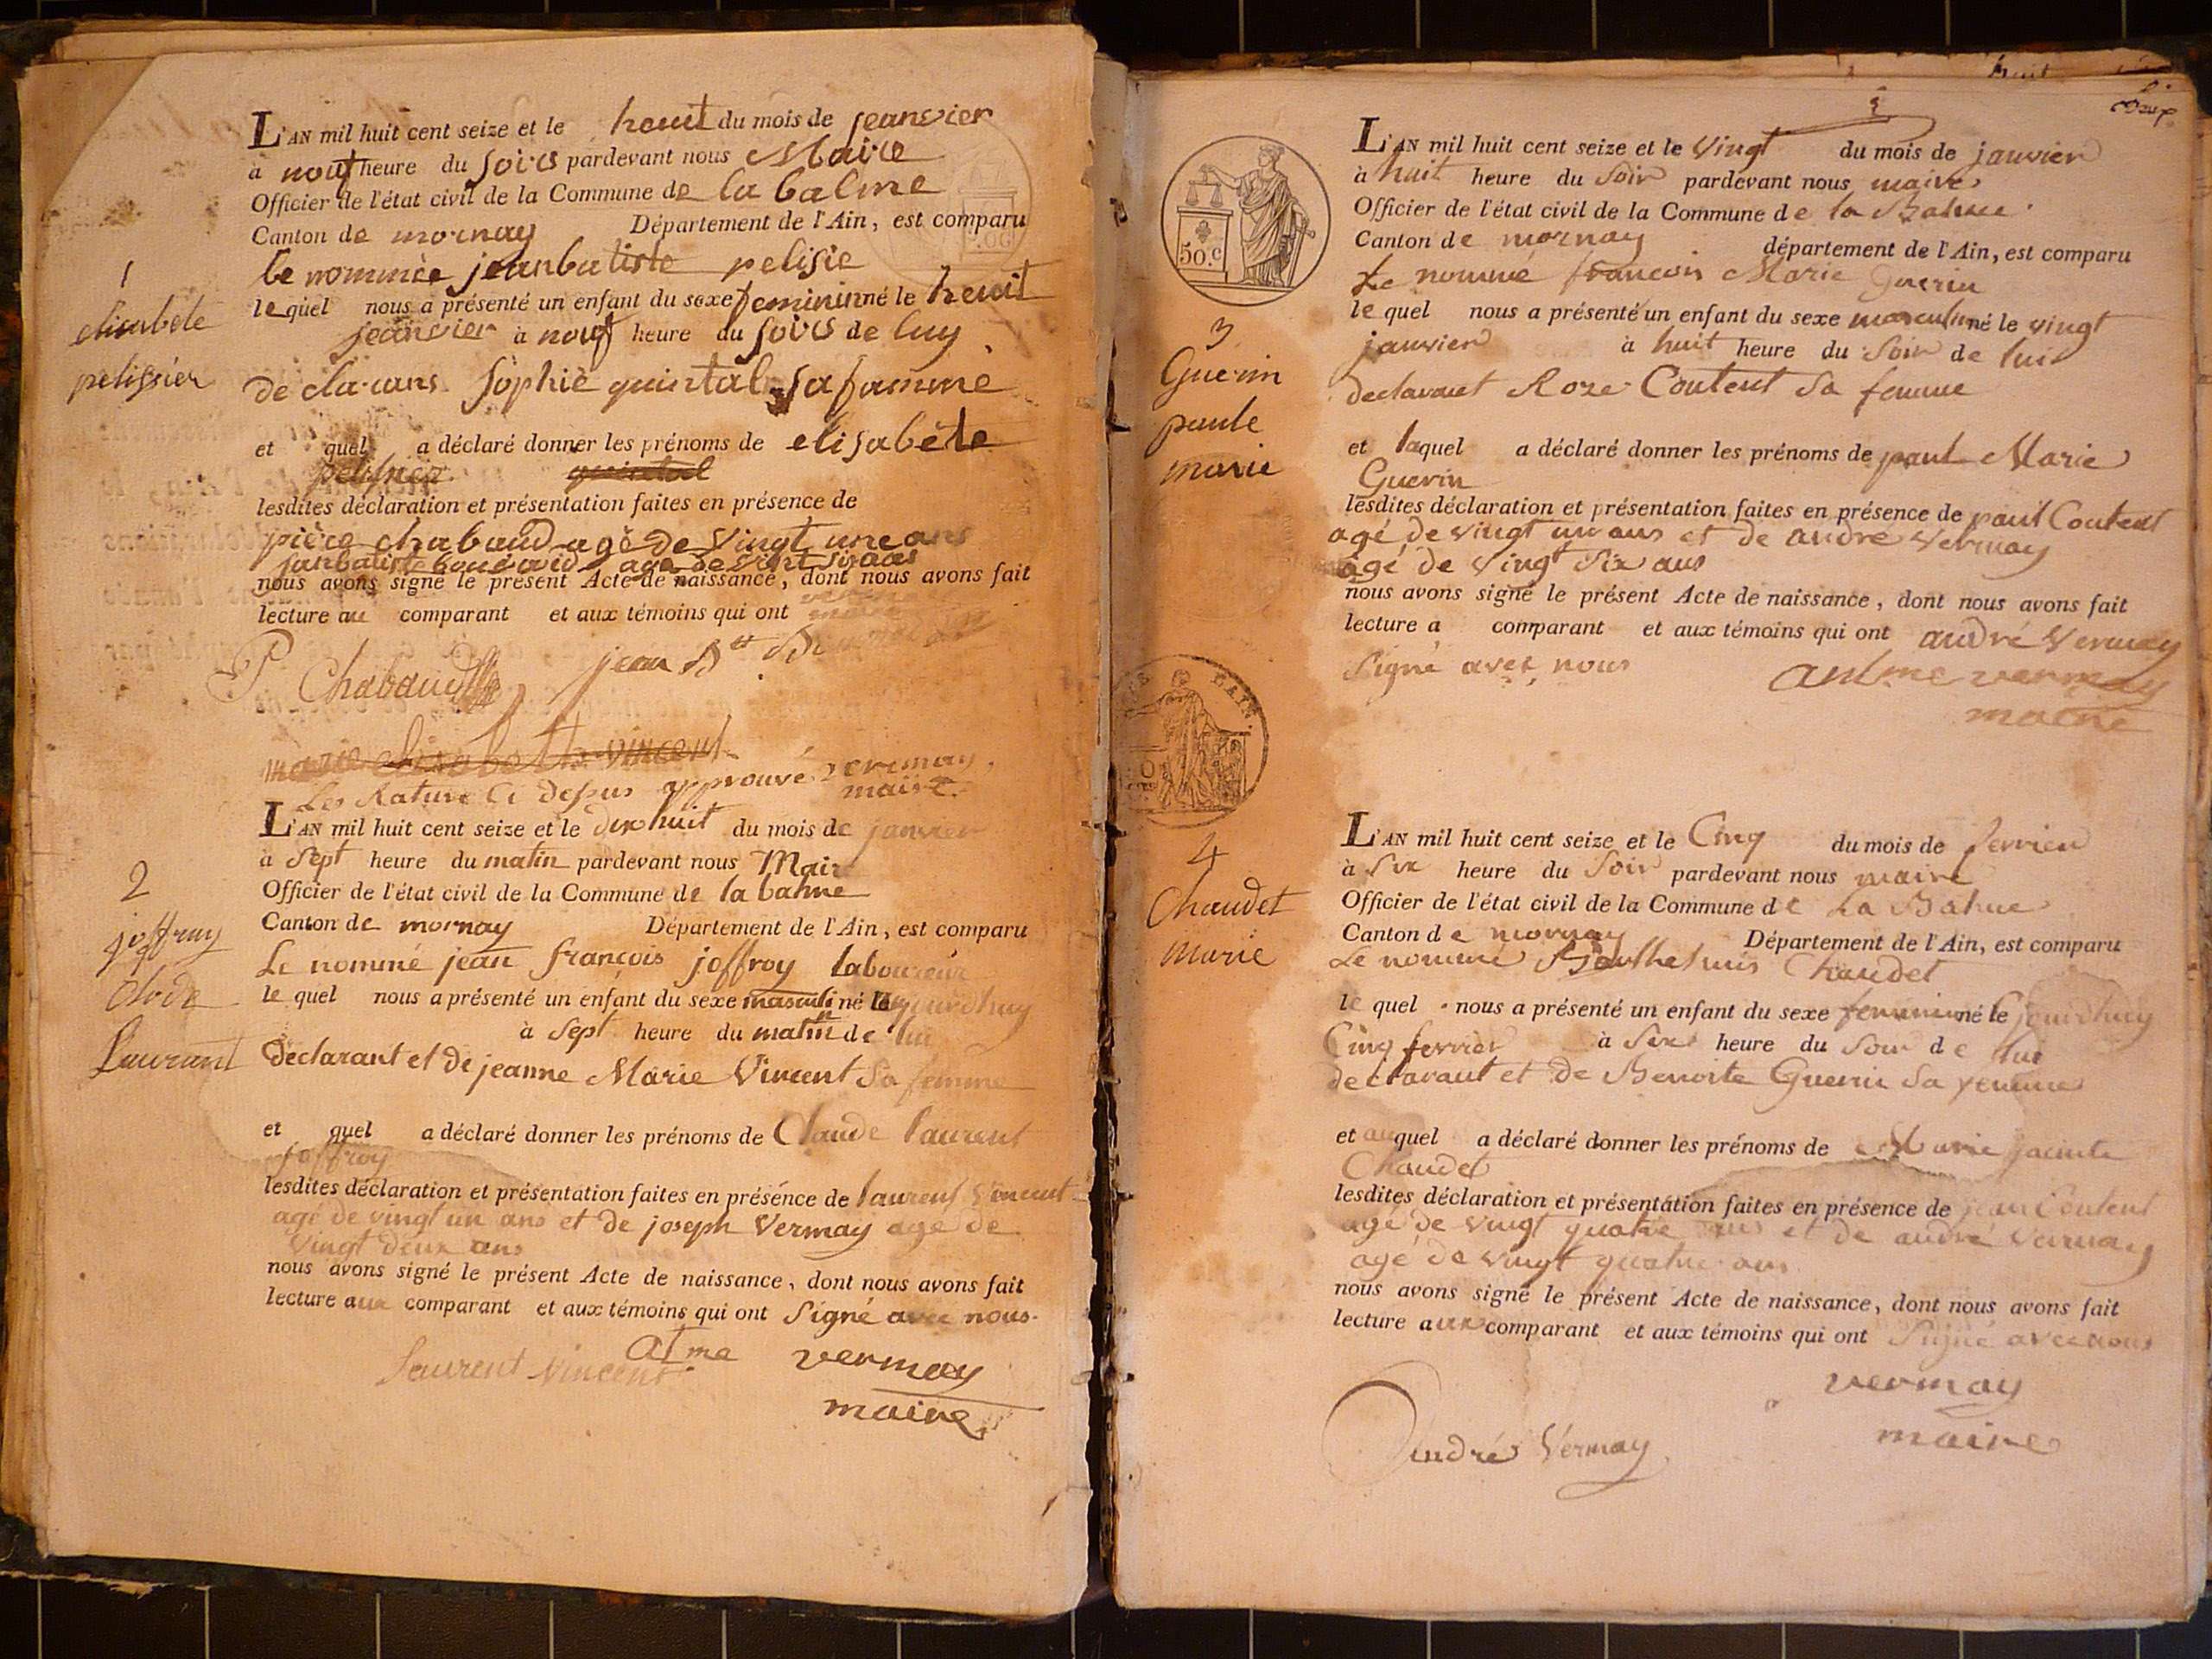 1
elisabete
pelissier
L'AN mil huit cent seize et le heuit du mois de jeanvier
à nouf heure du soirs pardevant nous Maire
Officier de l'état civil de la Commune de la balme
Canton de mornay Département de l'Ain, est comparu
le nommée jeanbatiste pelisie
lequel nous a présenté un enfant du sexe feminin né le heuit
jeanvier à nouf heure du soirs de luy
de clarans Sophie quintal sa famme
et quel a déclaré donner les prénoms de elisabète
pelissier quintal
lesdites déclaration et présentation faites en présence de
pière chabaud agé de vingt une ans
janbatiste agé de vint sixans
nous avons signé le présent Acte de naissance, dont nous avons fait
lecture au comparant et aux témoins qui ont
P Chabaud jean Btt
marie Elisabette vincent
Les Rature Ci depus approuvé vermay
maire
2
joffray
Clode
Laurant
L'AN mil huit cent seize et le dix huit du mois de janvier
à Sept heure du matin pardevant nous Maire
Officier de l'état civil de la Commune de la balme
Canton de mornay Département de l'Ain, est comparu
Le nommé jean françois joffroy laboureur
le quel nous a présenté un enfant du sexe masculin né le aujourdhuy
à Sept heure du matin de lui
Declarant et de jeanne Marie Vincent Sa femme
et quel a déclaré donner les prénoms de Claude laurent
joffroy
lesdites déclaration et présentation faites en présence de laurent Vincent
agé de vingt un ans et de joseph Vermay agé de
vingt deux ans
nous avons signé le présent Acte de naissance, dont nous avons fait
lecture aux comparant et aux témoins qui ont Signé avec nous.
Laurent Vincent. Atme vermay
maire
huit
deux
50.c
3
Guerin
paule
marie
L'AN mil huit cent seize et le Vingt du mois de janvier
à huit heure du Soir pardevant nous maire
Officier de l'état civil de la Commune de la Balme
Canton de mornay département de l'Ain, est comparu
Le nommé francois Marie Guerin
le quel nous a présenté un enfant du sexe masculin né le vingt
janvier à huit heure du Soir de lui
declarant Roze Coutent Sa femme
et laquel a déclaré donner les prénoms de paul Marie
Guerin
lesdites déclaration et présentation faites en présence de paul Coutent
agé de vingt un ans et de andré Vermay
agé de vingt Six ans
nous avons signé le présent Acte de naissance, dont nous avons fait
lecture a comparant et aux témoins qui ont andré Vermay
Signé avec nous
antme vermay
maire
AIN.
4
Chaudet
marie
L'AN mil huit cent seize et le Cinq du mois de fevrier
à Six heure du Soir pardevant nous maire
Officier de l'état civil de la Commune de La Balme
Canton de mornay Département de l'Ain, est comparu
Le nommé Barthelmis Chaudet
le quel nous a présenté un enfant du sexe feminin né le jourdhuy
Cinq fevrier à Six heure du Soir de lui
declarant et de Benoite Guerin Sa femme
et auquel a déclaré donner les prénoms de Marie jacinte
Chaudet
lesdites déclaration et présentation faites en présence de jean Coutent
agé de vingt quatre ans et de andré Vermay
agé de vingt quatre ans
nous avons signé le présent Acte de naissance, dont nous avons fait
lecture aux comparant et aux témoins qui ont Signé avec nous
vermay
maire
André Vermay